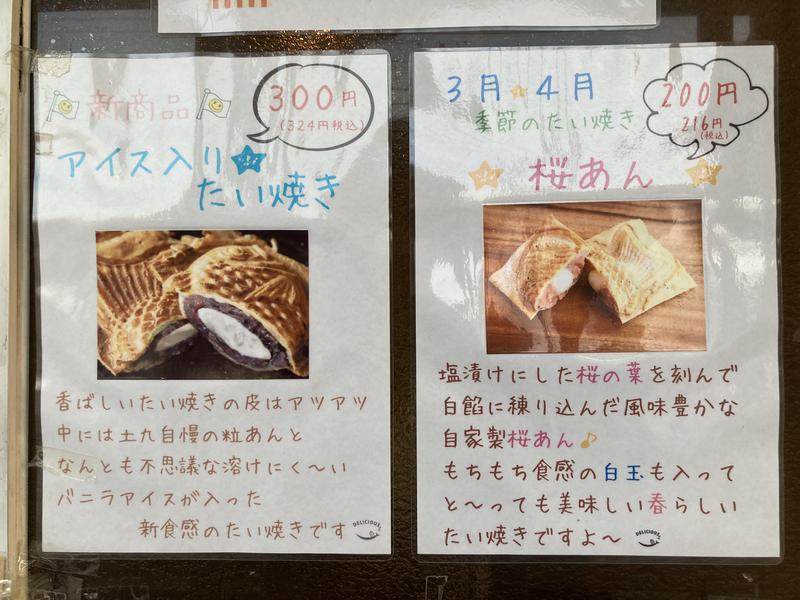 新商品
300円
(324円税込)
アイス入り
たい焼き
香ばしいたい焼きの皮はアツアツ
中には土九自慢の粒あんと
なんとも不思議な溶けにく〜い
バニラアイスが入った
新食感のたい焼きです
DELICIOUS
3月 4月
季節のたい焼き
200円
216円
(税込)
桜あん
塩漬けにした桜の葉を刻んで
白餡に練り込んだ風味豊かな
自家製桜あん♪
もちもち食感の白玉も入って
と〜っても美味しい春らしい
たい焼きですよ〜
DELICIOUS